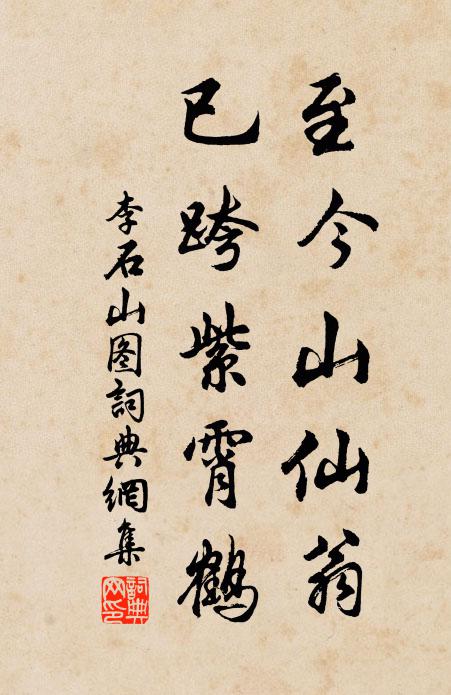 至今山仙翁
已跨紫霄鶴
李石山图詞典網集
詞典
网印